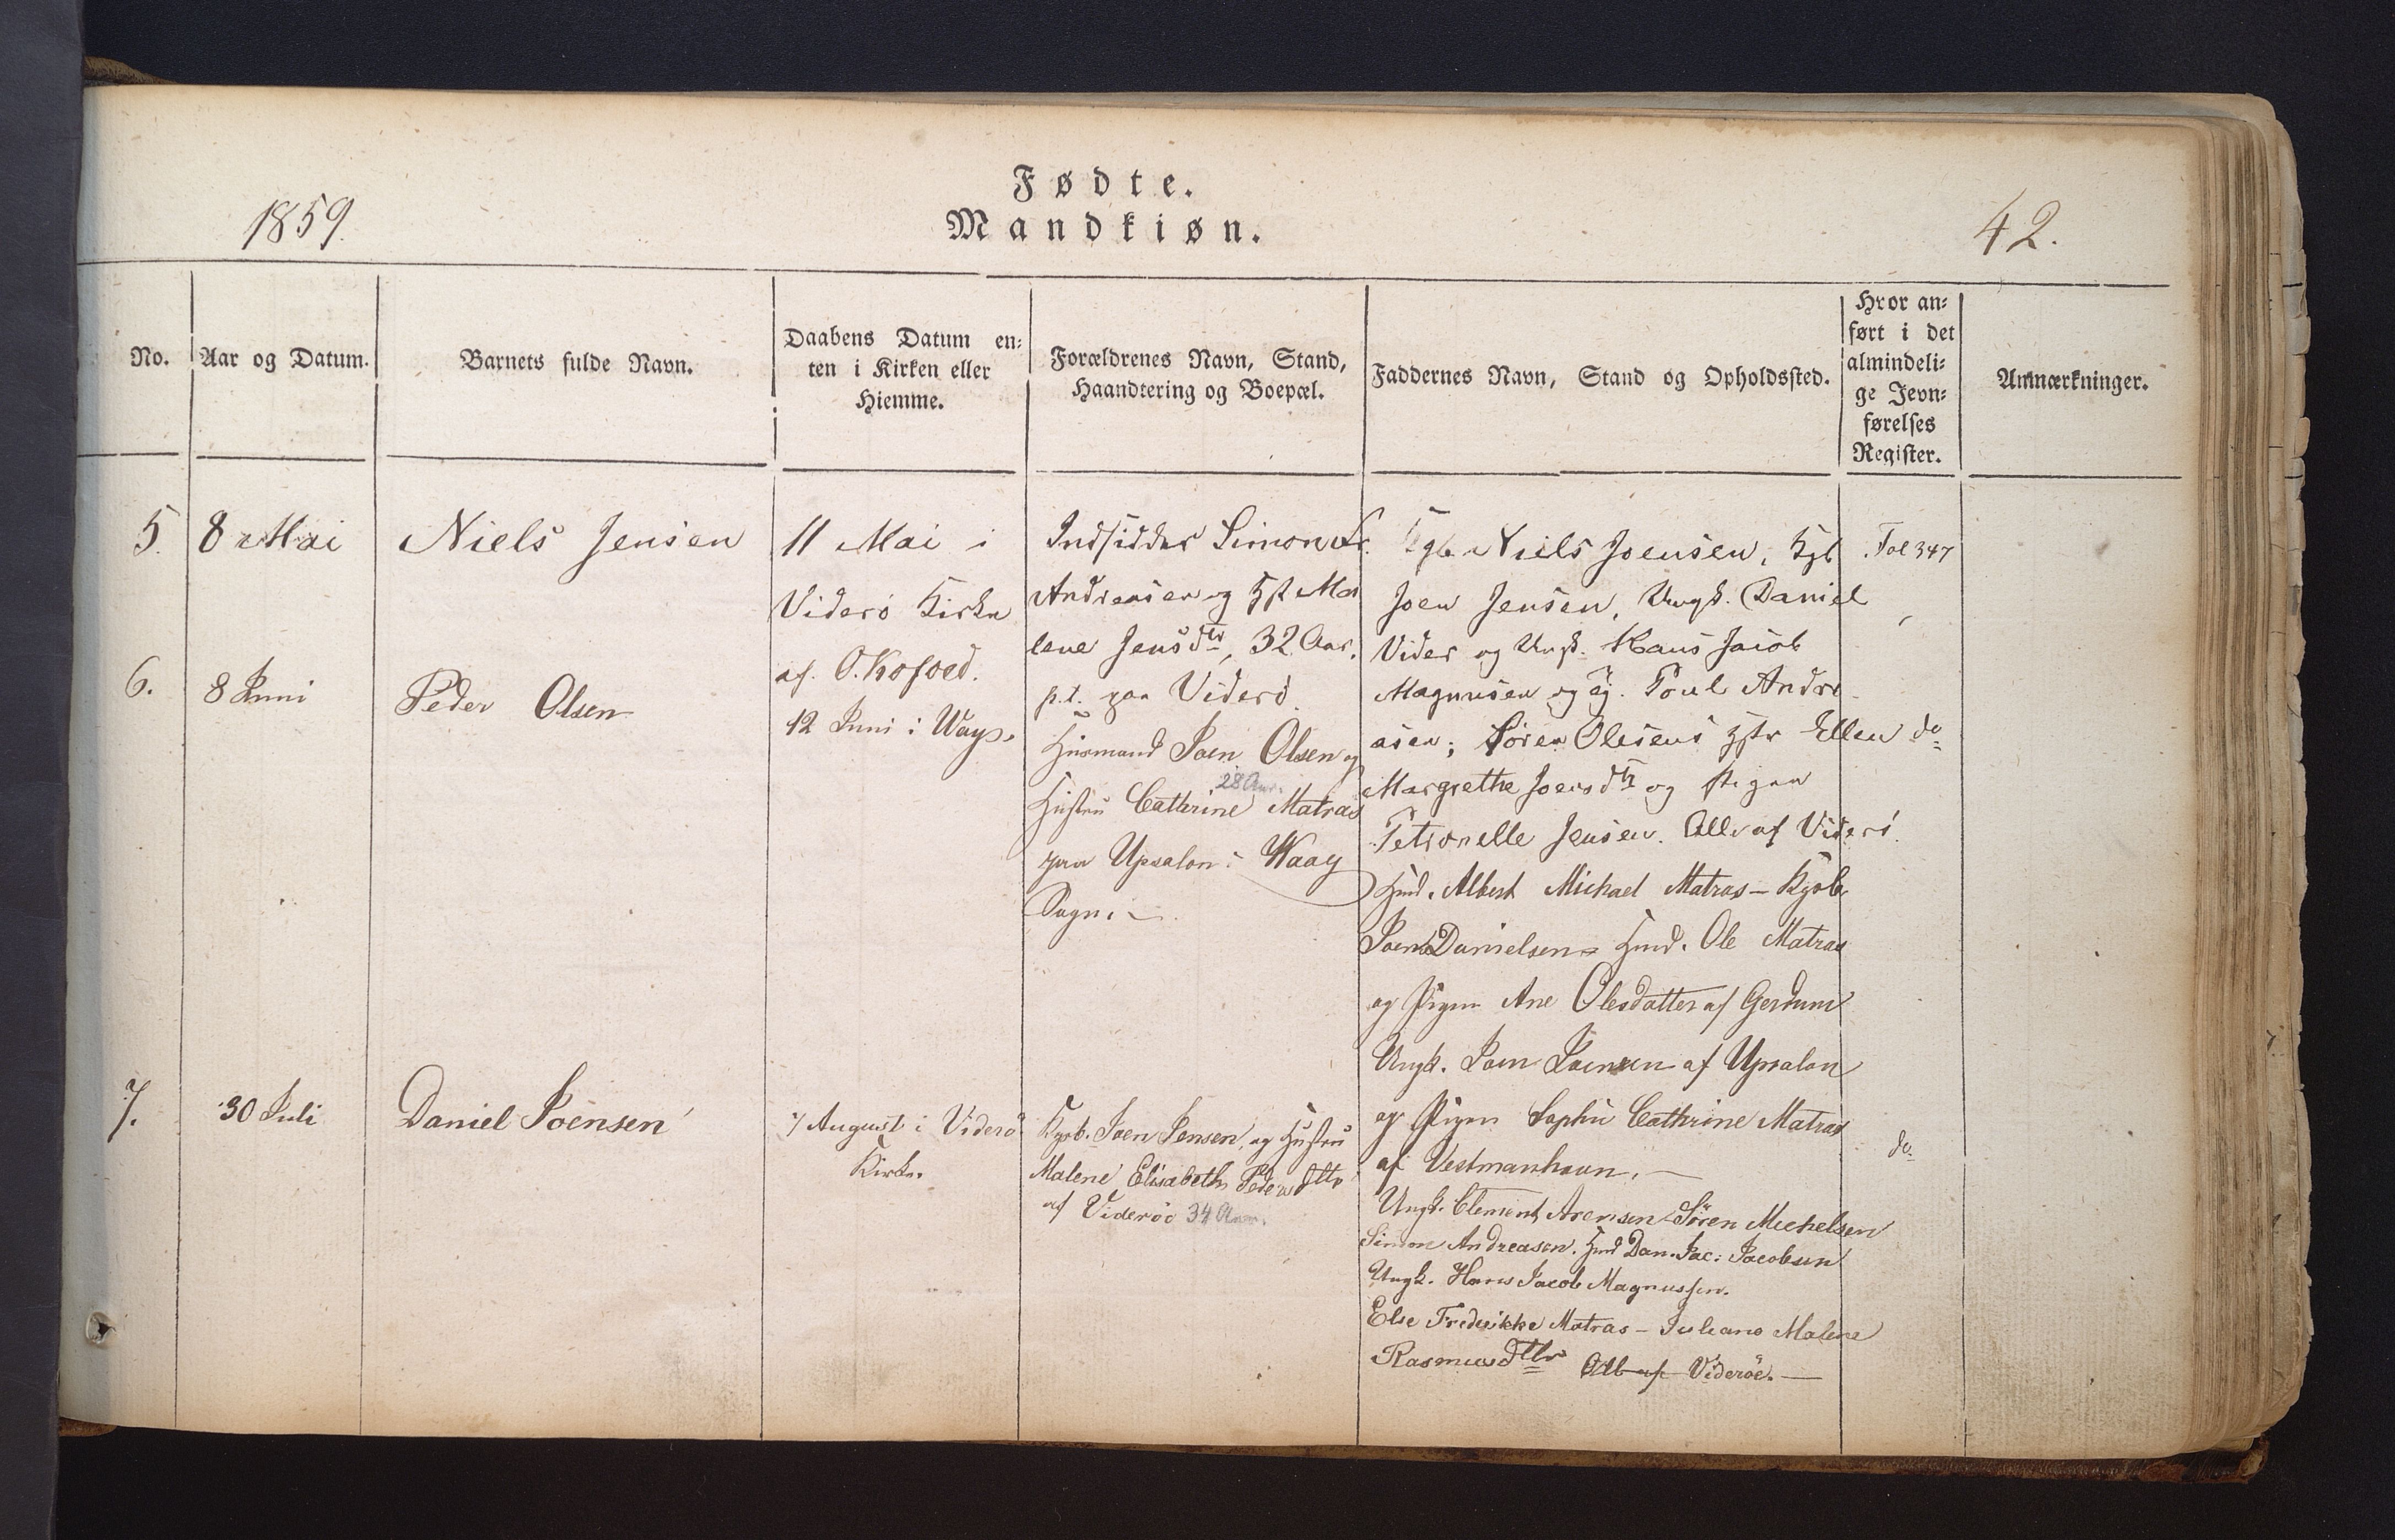 1859.
Fødte.
Mandkiøn.
42.
No.
Aar og Datum.
Barnets fulde Navn.
Daabens Datum en-
ten i Kirken eller
Hiemme.
Forældrenes Navn, Stand,
Haandtering og Boepæl.
Faddernes Navn, Stand og Opholdssted.
Hvor an-
ført i det
almindeli-
ge Jevn-
førelses
Register.
Anmærkninger.
5.
8 Mai
Niels Jensen
11 Mai i
Viderö Kirke
af O. Kofoed.
Indsidder Simon Fr.
Andreasen og Hst Ma
lene Jensdtr, 32 Aar.
p.t. paa Viderö.
Kgb. Niels Joensen, Kgb
Joen Jensen, Ungk. Daniel
Vider og Ungk. Hans Jacob
Magnusen og Poul Andre
asen; Sören Olesens Hstr Ellen
Margrethe Joensdtr og Pigen
Petronelle Jensen. Alle af Viderö.
Fol 347
6.
8 Juni
Peder Olsen
12 Juni i Waag.
Huusmand Joen Olsen og
28 Aar.
Hustru Cathrine Matras
paa Upsalon i Waag
Sogn.
Hmd. Albert Michael Matras - Kgsb.
Joen Danielsen - Hmd. Ole Matras
og Pigen Ane Olesdatter af Gerdum
Ungk. Joen Joensen af Upsalon
og Pigen Sophie Cathrine Matras
af Vestmanhavn.
do
7.
30 Juli
Daniel Joensen
7 August i Viderö
Kirke.
Kgsb. Joen Jensen og Hustru
Malene Elisabeth Pedersdttr
af Videröe 34 Aar.
Ungk. Clement Arensen Sören Michelsen
Simon Andreasen. Hmd Dan. Jac: Jacobsen
Ungk. Hans Jacob Magnussen.
Else Frederikke Matras - Juliane Malene
Rasmusdttr Alle af Viderøe.
do.